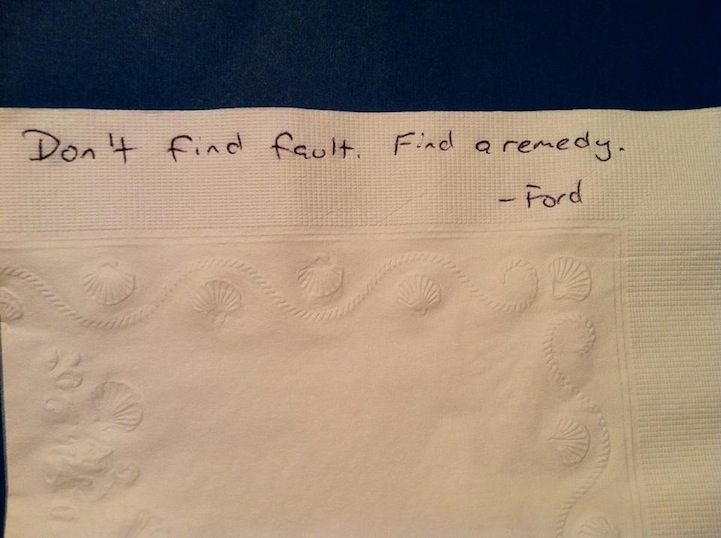 Don't find fault. Find a remedy.
- Ford